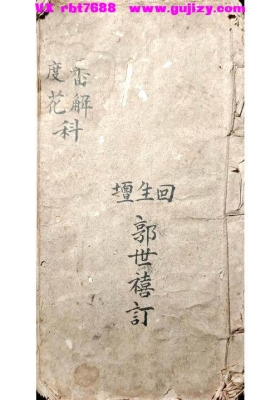 VX rbt7688 www.gujizy.com
解
度花
科
回生壇
郭世禧訂